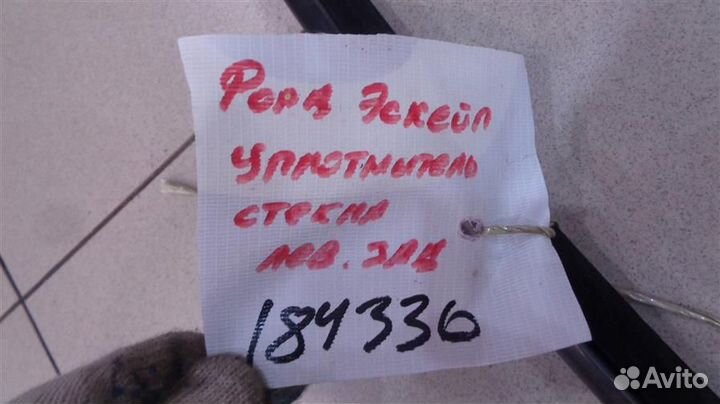 Форд Эскейп
уплотнитель
стекла
лев. зад
184336
Avito